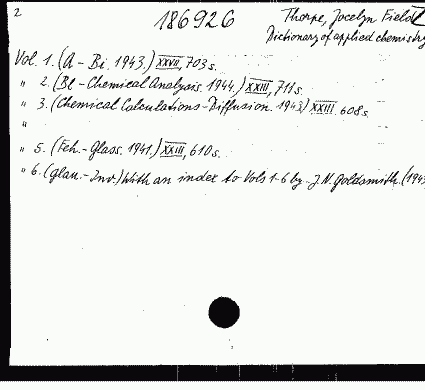 2
186926
Thorpe, Jocelyn Field
Dictionary of applied chemistry
Vol. 1. (A - Bi. 1943.) XXVII, 703 s.
" 2. (Bl - Chemical Analysis. 1944.) XXIII, 711 s.
" 3. (Chemical Calculations - Diffusion. 1943) XXIII. 608 s.
"
" 5. (Feh. - Glass. 1941.) XXIII, 610 s.
" 6. (Glau. - Inv.) With an index to Vols 1-6 by J. N. Goldsmith. (1943